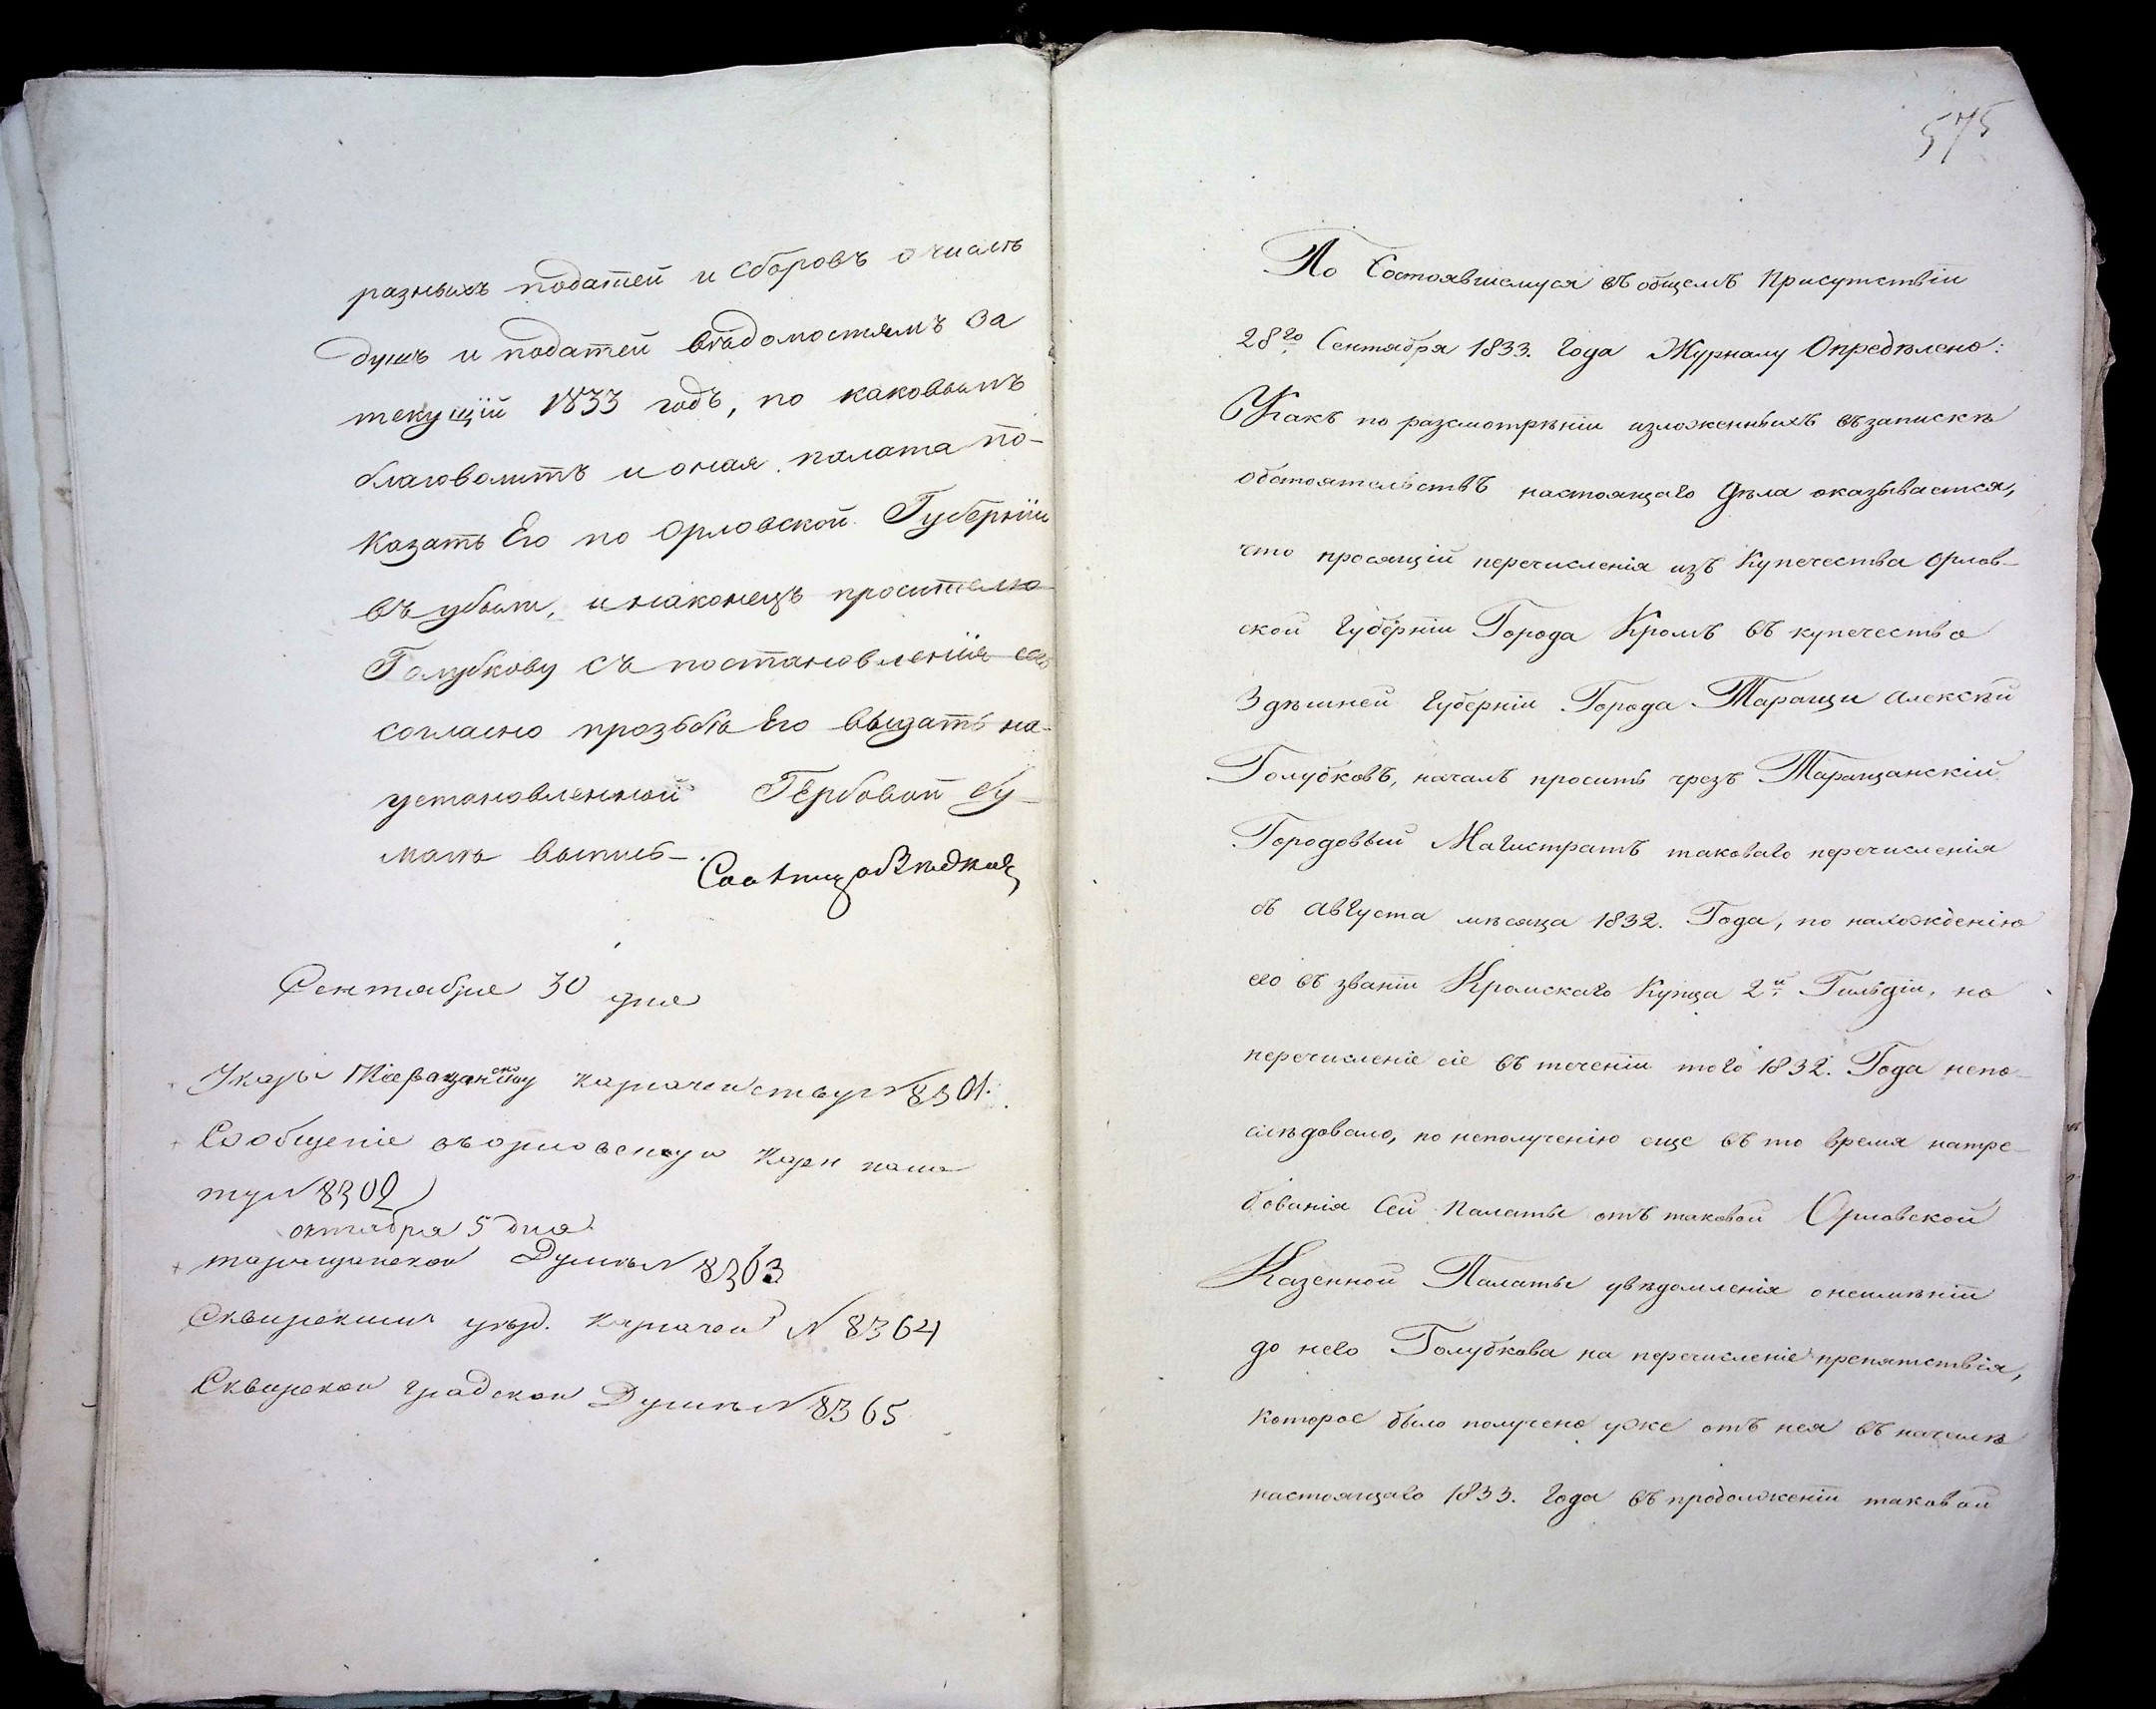 разныхъ податей и сборовъ о числѣ
душъ и податей вѣдомостямъ за
текущій 1833 годъ, по каковымъ
благоволитъ и оная палата по-
казать Его по Орловской Губерніи
въ убыли, и наконецъ просителю
Голубкову съ постановленія сего
согласно прозьбѣ Его выдать на
установленной Гербовой бу-
магѣ выпись.
Сентября 30 дня
Указъ казначейству N 8301.
Сообщеніе въ орловскую Казен пала
ту N 8302
октября 5 дня
таращанской Думѣ N 8363
Сквирскому уѣзд. казначей N 8364
Сквирской градской Думѣ N 8365
575
По Состоявшемуся въ общемъ Присутствіи
28го Сентября 1833. Года Журналу Опредѣлено:
Какъ по разсмотрѣніи изложенныхъ въ запискѣ
обстоятельствъ настоящаго дѣла оказывается,
что просящій перечисленія изъ Купечества Орлов-
ской Губерніи Города Кромъ въ купечество
Здѣшней Губерніи Города Таращи Алексѣй
Голубковъ, началъ просить чрезъ Таращанскій
Городовый Магистратъ таковаго перечисленія
съ Августа мѣсяца 1832. Года, по нахожденію
его въ званіи Кромскаго Купца 2й Гильдіи, но
перечисленіе сіе въ теченіи того 1832. Года непо-
слѣдовало, по неполученію еще въ то время натре-
бованія Сей Палаты отъ таковой Орловской
Казенной Палаты увѣдомленія онеимѣніи
до него Голубкова на перечисленіе препятствія,
которое было получено уже отъ нея въ началѣ
настоящаго 1833. Года въ продолженіи таковой